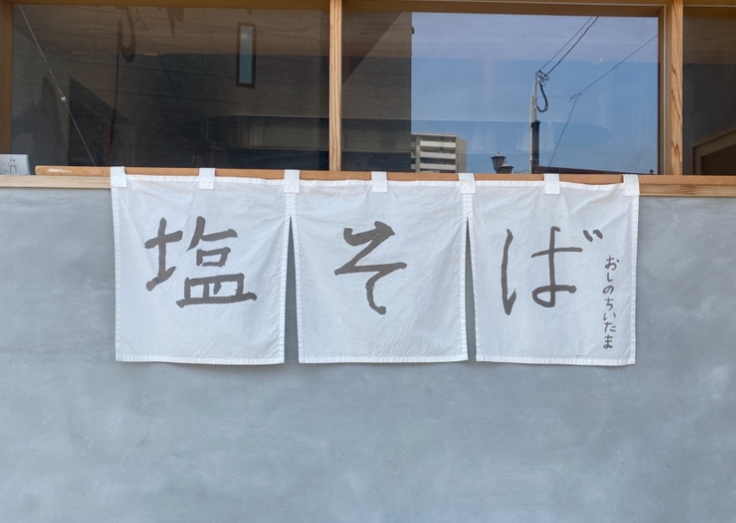 塩そば
おしのちいたま